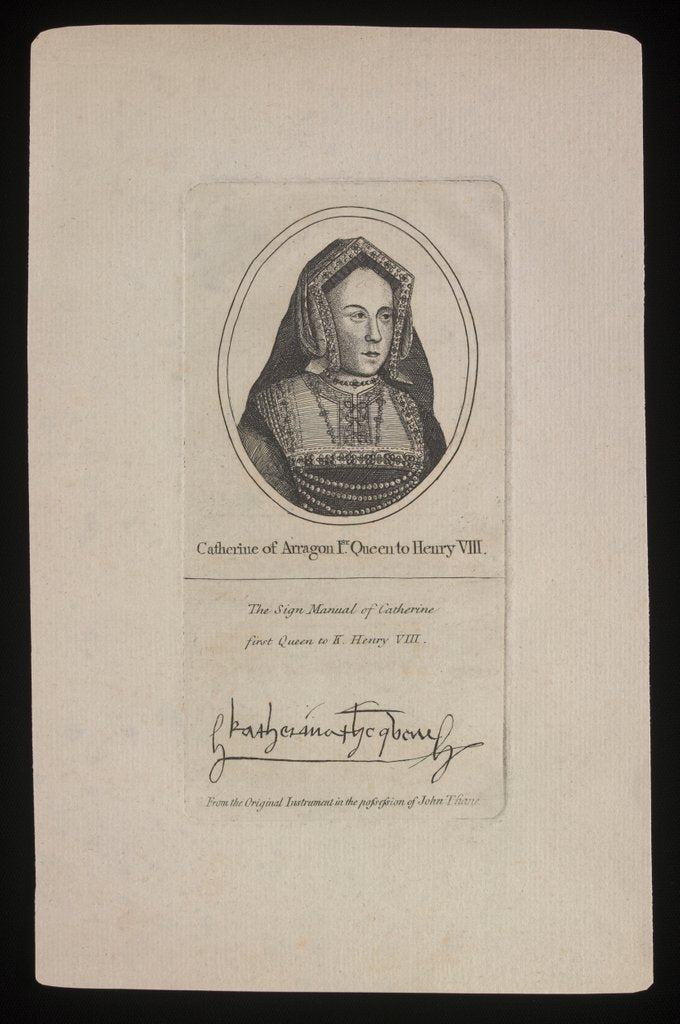 Catherine of Arragon I.st Queen to Henry VIII.
The Sign Manual of Catherine
first Queen to K. Henry VIII.
katherina the qwene
From the Original Instrument in the poſseſsion of John Thane